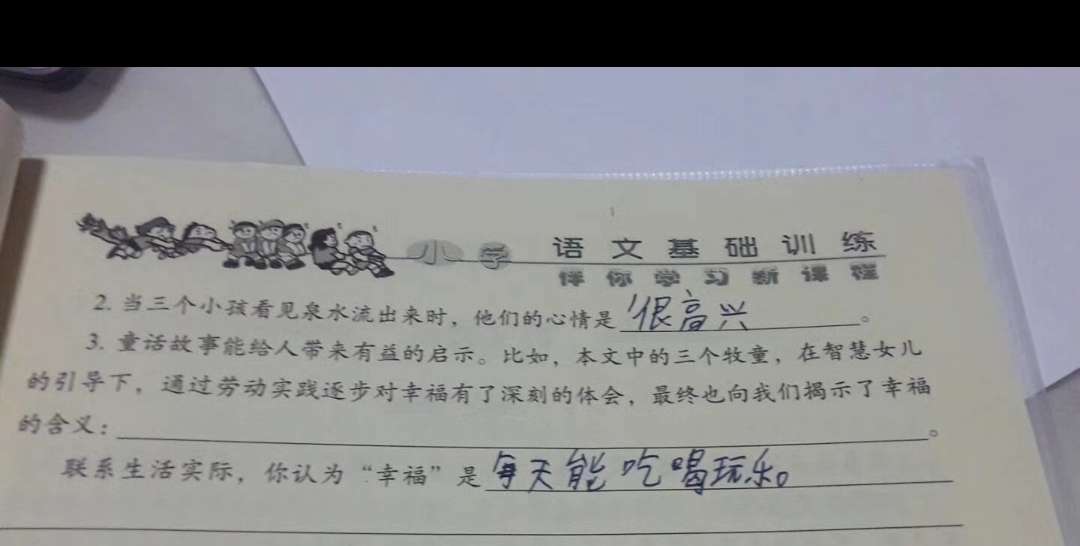 小学 语文基础训练
伴你学习新课程
2. 当三个小孩看见泉水流出来时，他们的心情是很高兴。
3. 童话故事能给人带来有益的启示。比如，本文中的三个牧童，在智慧女儿
的引导下，通过劳动实践逐步对幸福有了深刻的体会，最终也向我们揭示了幸福
的含义：。
联系生活实际，你认为“幸福”是每天能吃喝玩乐。